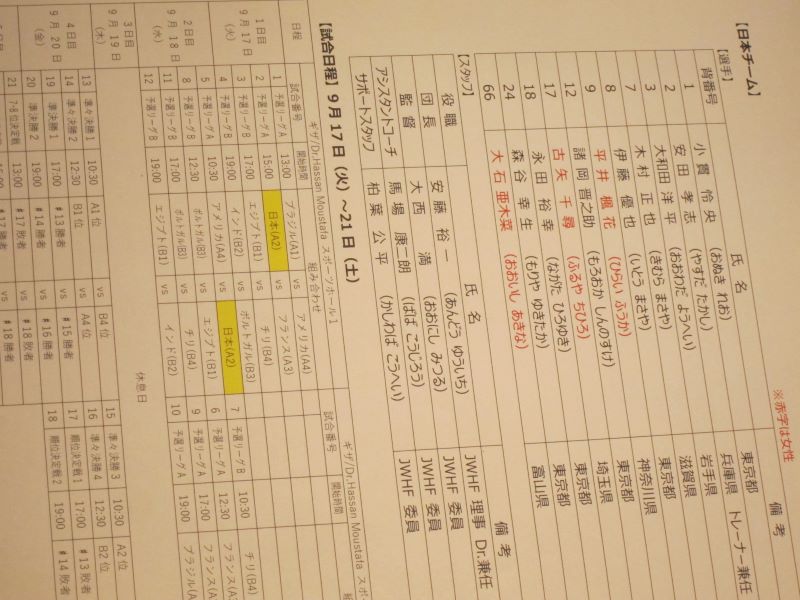 ※赤字は女性
【日本チーム】
【選手】
背番号 氏 名 備 考
1 小貫 怜央 (おぬき れお) 東京都
2 安田 孝志 (やすだ たかし) 兵庫県 トレーナー兼任
3 大和田 洋平 (おおわだ ようへい) 岩手県
7 木村 正也 (きむら まさや) 滋賀県
8 伊藤 優也 (いとう まさや) 東京都
9 平井 楓花 (ひらい ふうか) 神奈川県
12 諸岡 晋之助 (もろおか しんのすけ) 東京都
17 古矢 千尋 (ふるや ちひろ) 埼玉県
18 永田 裕幸 (ながた ひろゆき) 東京都
24 森谷 幸生 (もりや ゆきたか) 東京都
66 大石 亜木菜 (おおいし あきな) 富山県
【スタッフ】
役職 氏 名 備 考
団長 安藤 裕一 (あんどう ゆういち) JWHF 理事 Dr.兼任
監督 大西 満 (おおにし みつる) JWHF 委員
アシスタントコーチ 馬場 康朗 (ばば こうじろう) JWHF 委員
サポートスタッフ 柏葉 公平 (かしわば こうへい) JWHF 委員
【試合日程】9月17日(火)~21日(土)
ギザ/Dr.Hassan Moustafa スポーツホール1 ギザ/Dr.Hassan Moustafa スポ
日程 試合番号 開始時間 組み合わせ 試合番号 開始時間 組
1日目 9月17日 (火)
1 予選リーグA 13:00 ブラジル(A1) vs アメリカ(A4)
2 予選リーグA 15:00 日本(A2) vs フランス(A3)
3 予選リーグB 17:00 エジプト(B1) vs チリ(B4)
4 予選リーグB 19:00 インド(B2) vs ポルトガル(B3)
2日目 9月18日 (水)
5 予選リーグA 10:30 アメリカ(A4) vs 日本(A2) 7 予選リーグB 10:30 チリ(B4)
8 予選リーグB 12:30 ポルトガル(B3) vs エジプト(B1) 6 予選リーグA 12:30 フランス(A
11 予選リーグB 17:00 ポルトガル(B3) vs チリ(B4) 9 予選リーグA 17:00 フランス(A
12 予選リーグB 19:00 エジプト(B1) vs インド(B2) 10 予選リーグA 19:00 ブラジル(A
3日目 9月19日 (木) 休息日
4日目 9月20日 (金)
13 準々決勝1 10:30 A1位 vs B4位 15 準々決勝3 10:30 A2位
14 準々決勝2 12:30 B1位 vs A4位 16 準々決勝4 12:30 B2位
19 準決勝1 17:00 #13勝者 vs #15勝者 17 順位決定戦1 17:00 #13敗者
20 準決勝2 19:00 #14勝者 vs #16勝者 18 順位決定戦2 19:00 #14敗者
21 7-8位決定戦 13:00 #17敗者 vs #18敗者
#17勝者 vs #18勝者